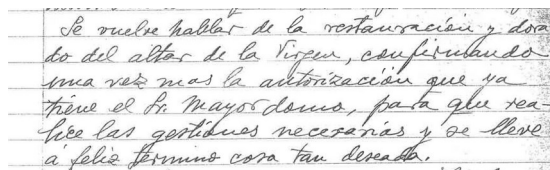 Se vuelve hablar de la restauración y dora
do del altar de la Virgen, confirmando
una vez mas la autorización que ya
tiene el Sr. Mayordomo, para que rea
lice las gestiones necesarias y se lleve
á feliz término cosa tan deseada.